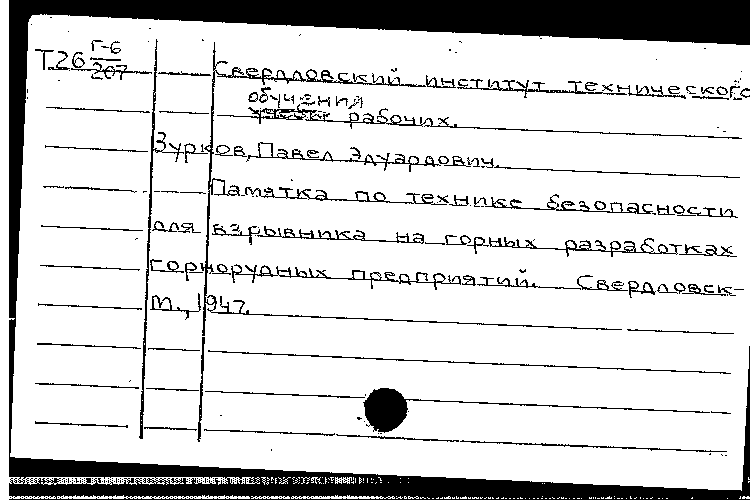 Т26 Г-6
207
Свердловский институт технического
обучения
рабочих.
Зурков, Павел Эдуардович.
Памятка по технике безопасности
для взрывника на горных разработках
горнорудных предприятий. Свердловск-
М., 1947.